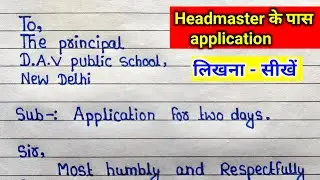 To,
The principal
D.A.V public school,
New Delhi
Headmaster के पास
application
लिखना - सीखें
Sub-: Application for two days.
Sir,
Most humbly and Respectfully